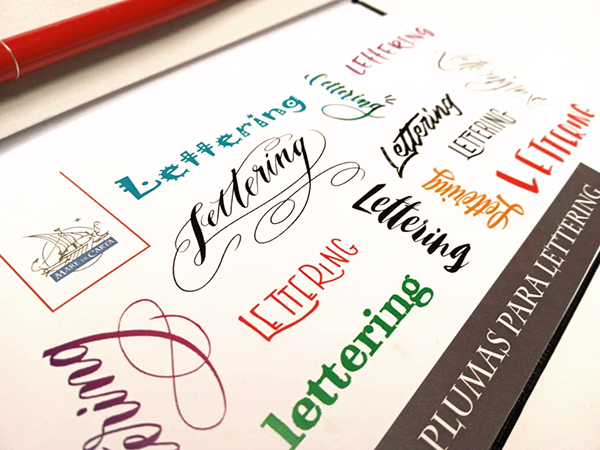 LETTERING
Lettering
Lettering
Lettering
Lettering
LETTERING
LETTERING
Lettering
Lettering
Lettering
LETTERING
lettering
MARE DE CARTA
PLUMAS PARA LETTERING